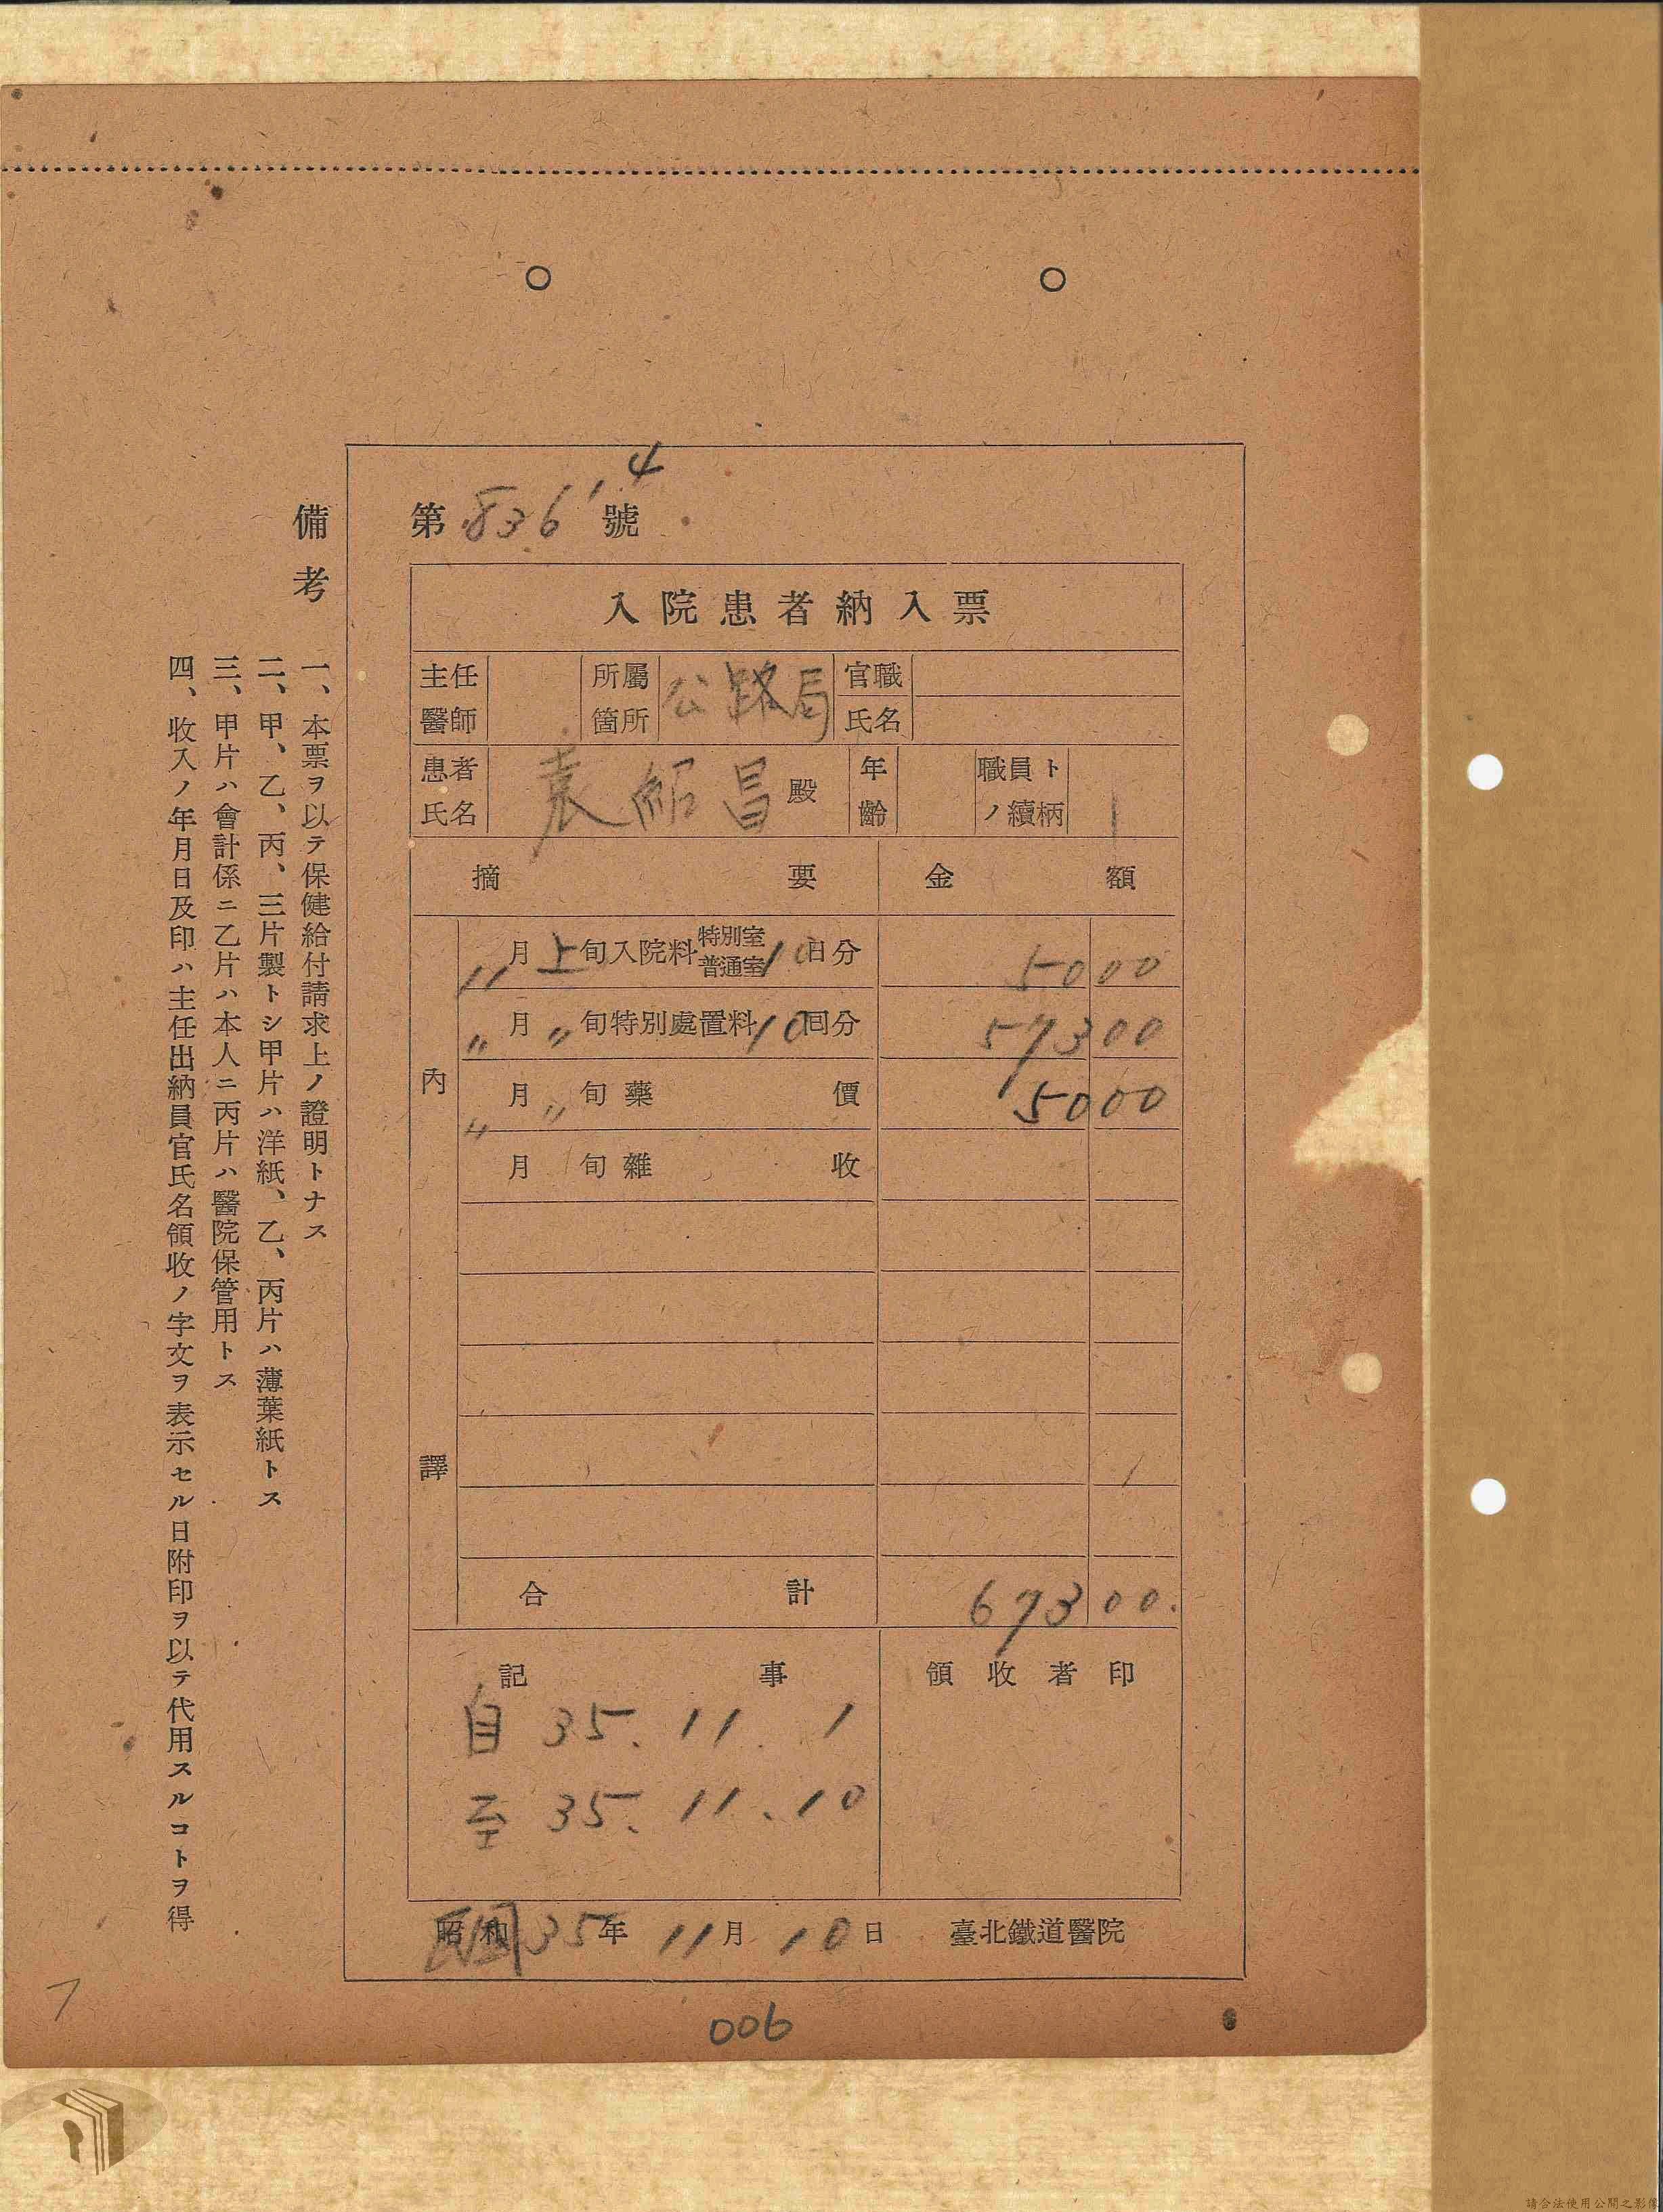 4
第 836' 號
入院患者納入票
主任醫師 所屬箇所 公路局 官職 氏名
患者氏名 袁紹昌 殿 年齡 職員トノ續柄
摘要 金額
內譯
11月上旬入院料 特別室 普通室 10日分 5000
〃月〃旬特別處置料 10回分 57300
〃月〃旬藥價 5000
月 旬雜收
合計 67300.
記事 領收者印
自 35. 11. 1
至 35. 11. 10
昭和 民國 35年 11月 10日 臺北鐵道醫院
備考
一、本票ヲ以テ保健給付請求上ノ證明トナス
二、甲、乙、丙、三片製トシ甲片ハ洋紙、乙、丙片ハ薄葉紙トス
三、甲片ハ會計係ニ乙片ハ本人ニ丙片ハ醫院保管用トス
四、收入ノ年月日及印ハ主任出納員官氏名領收ノ字文ヲ表示セル日附印ヲ以テ代用スルコトヲ得
7
006
請合法使用公開之影像